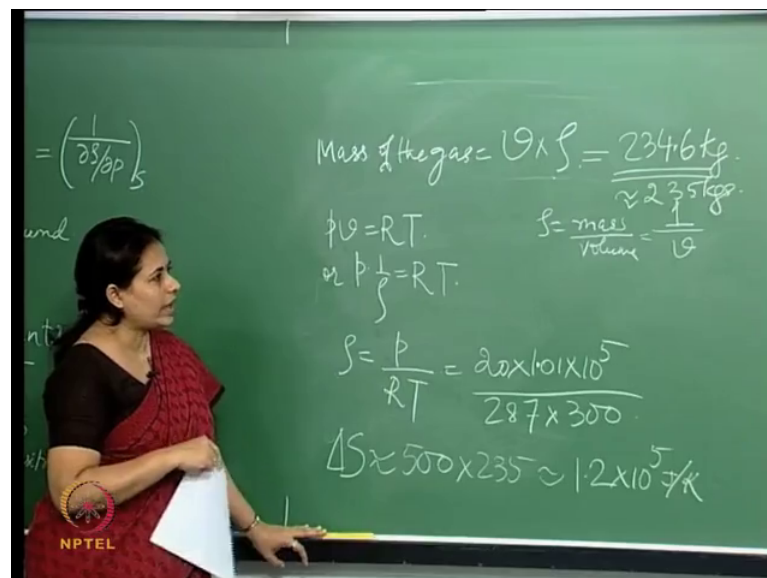 = (1/∂ρ/∂p)s
und
Mass of the gas = ϑ × ρ = 234.6 kg.
≈ 235 kgs.
pϑ = RT.
ρ = mass/volume = 1/ϑ
or p·1/ρ = RT.
ρ = p/RT = 20×1.01×10⁵/287×300
ΔS ≈ 500×235 ≈ 1.2×10⁵ J/K
NPTEL